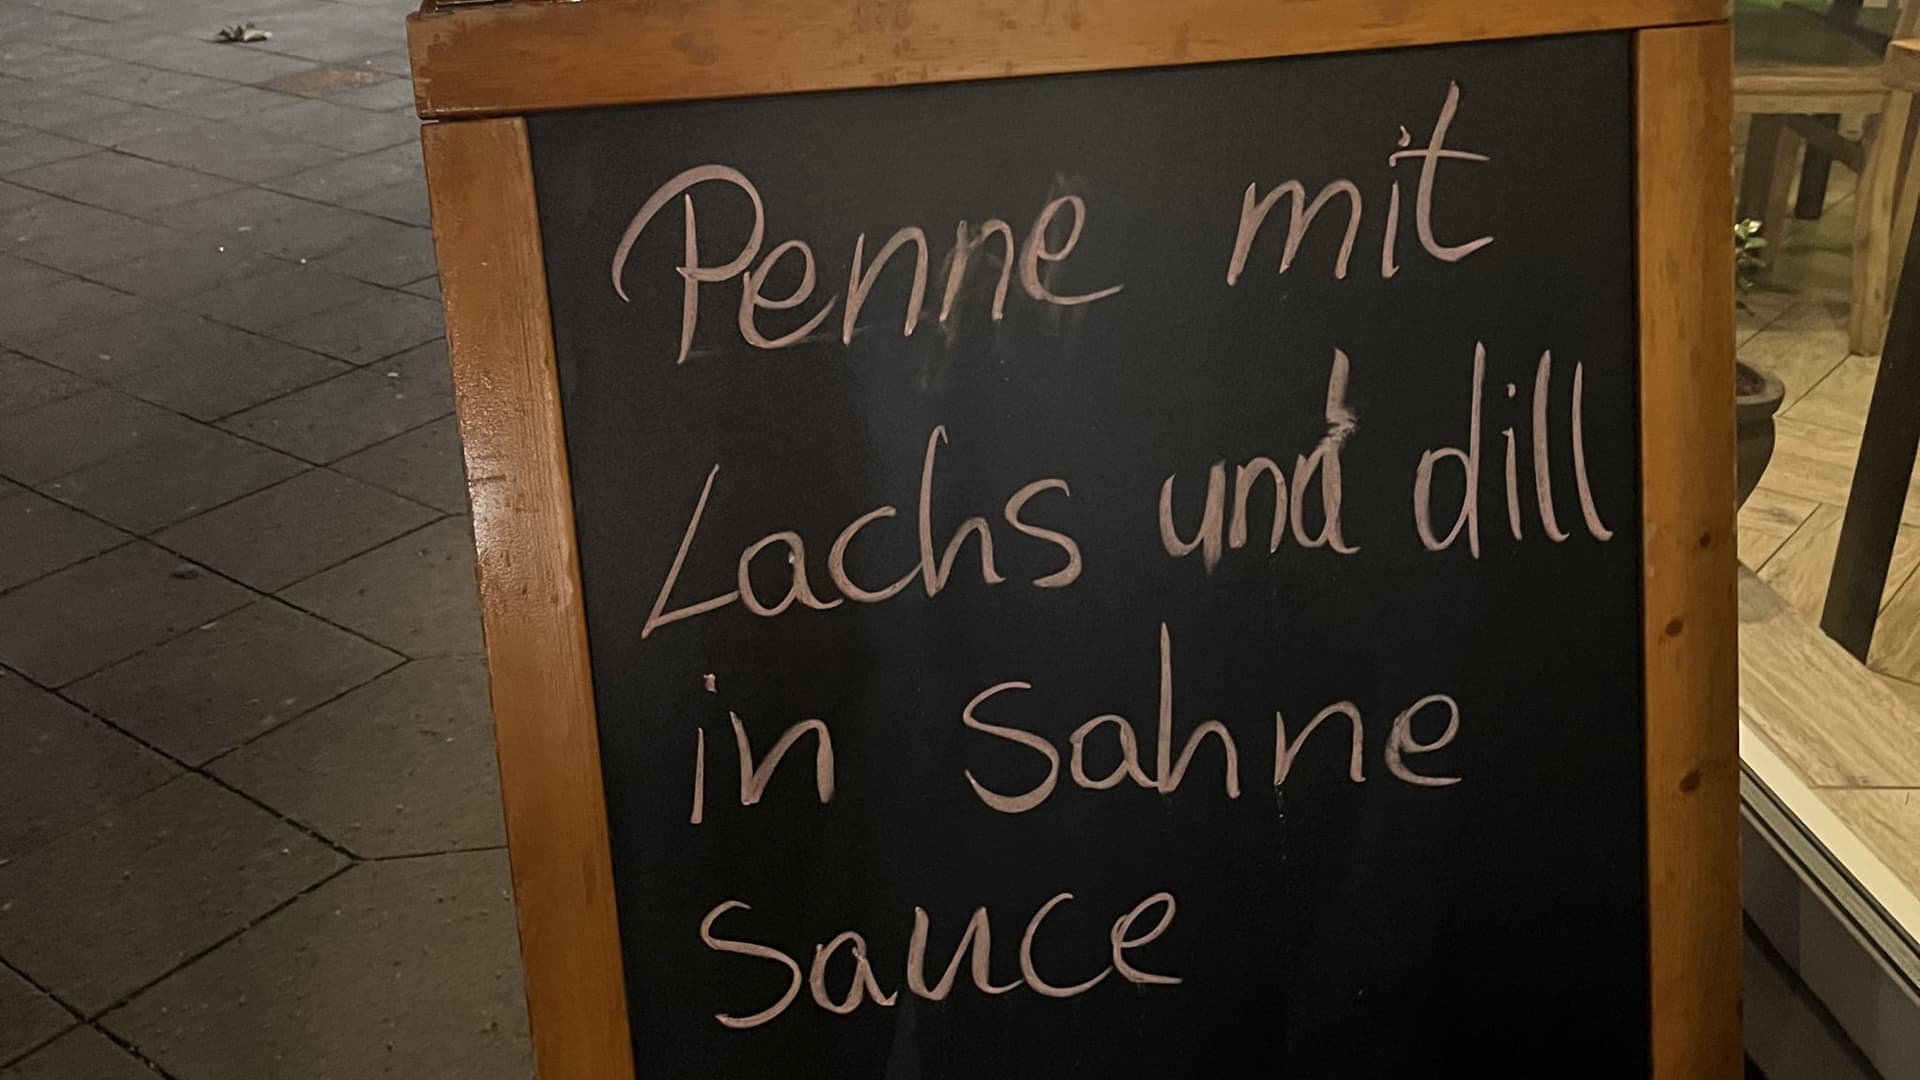 Penne mit
Lachs und dill
in Sahne
Sauce